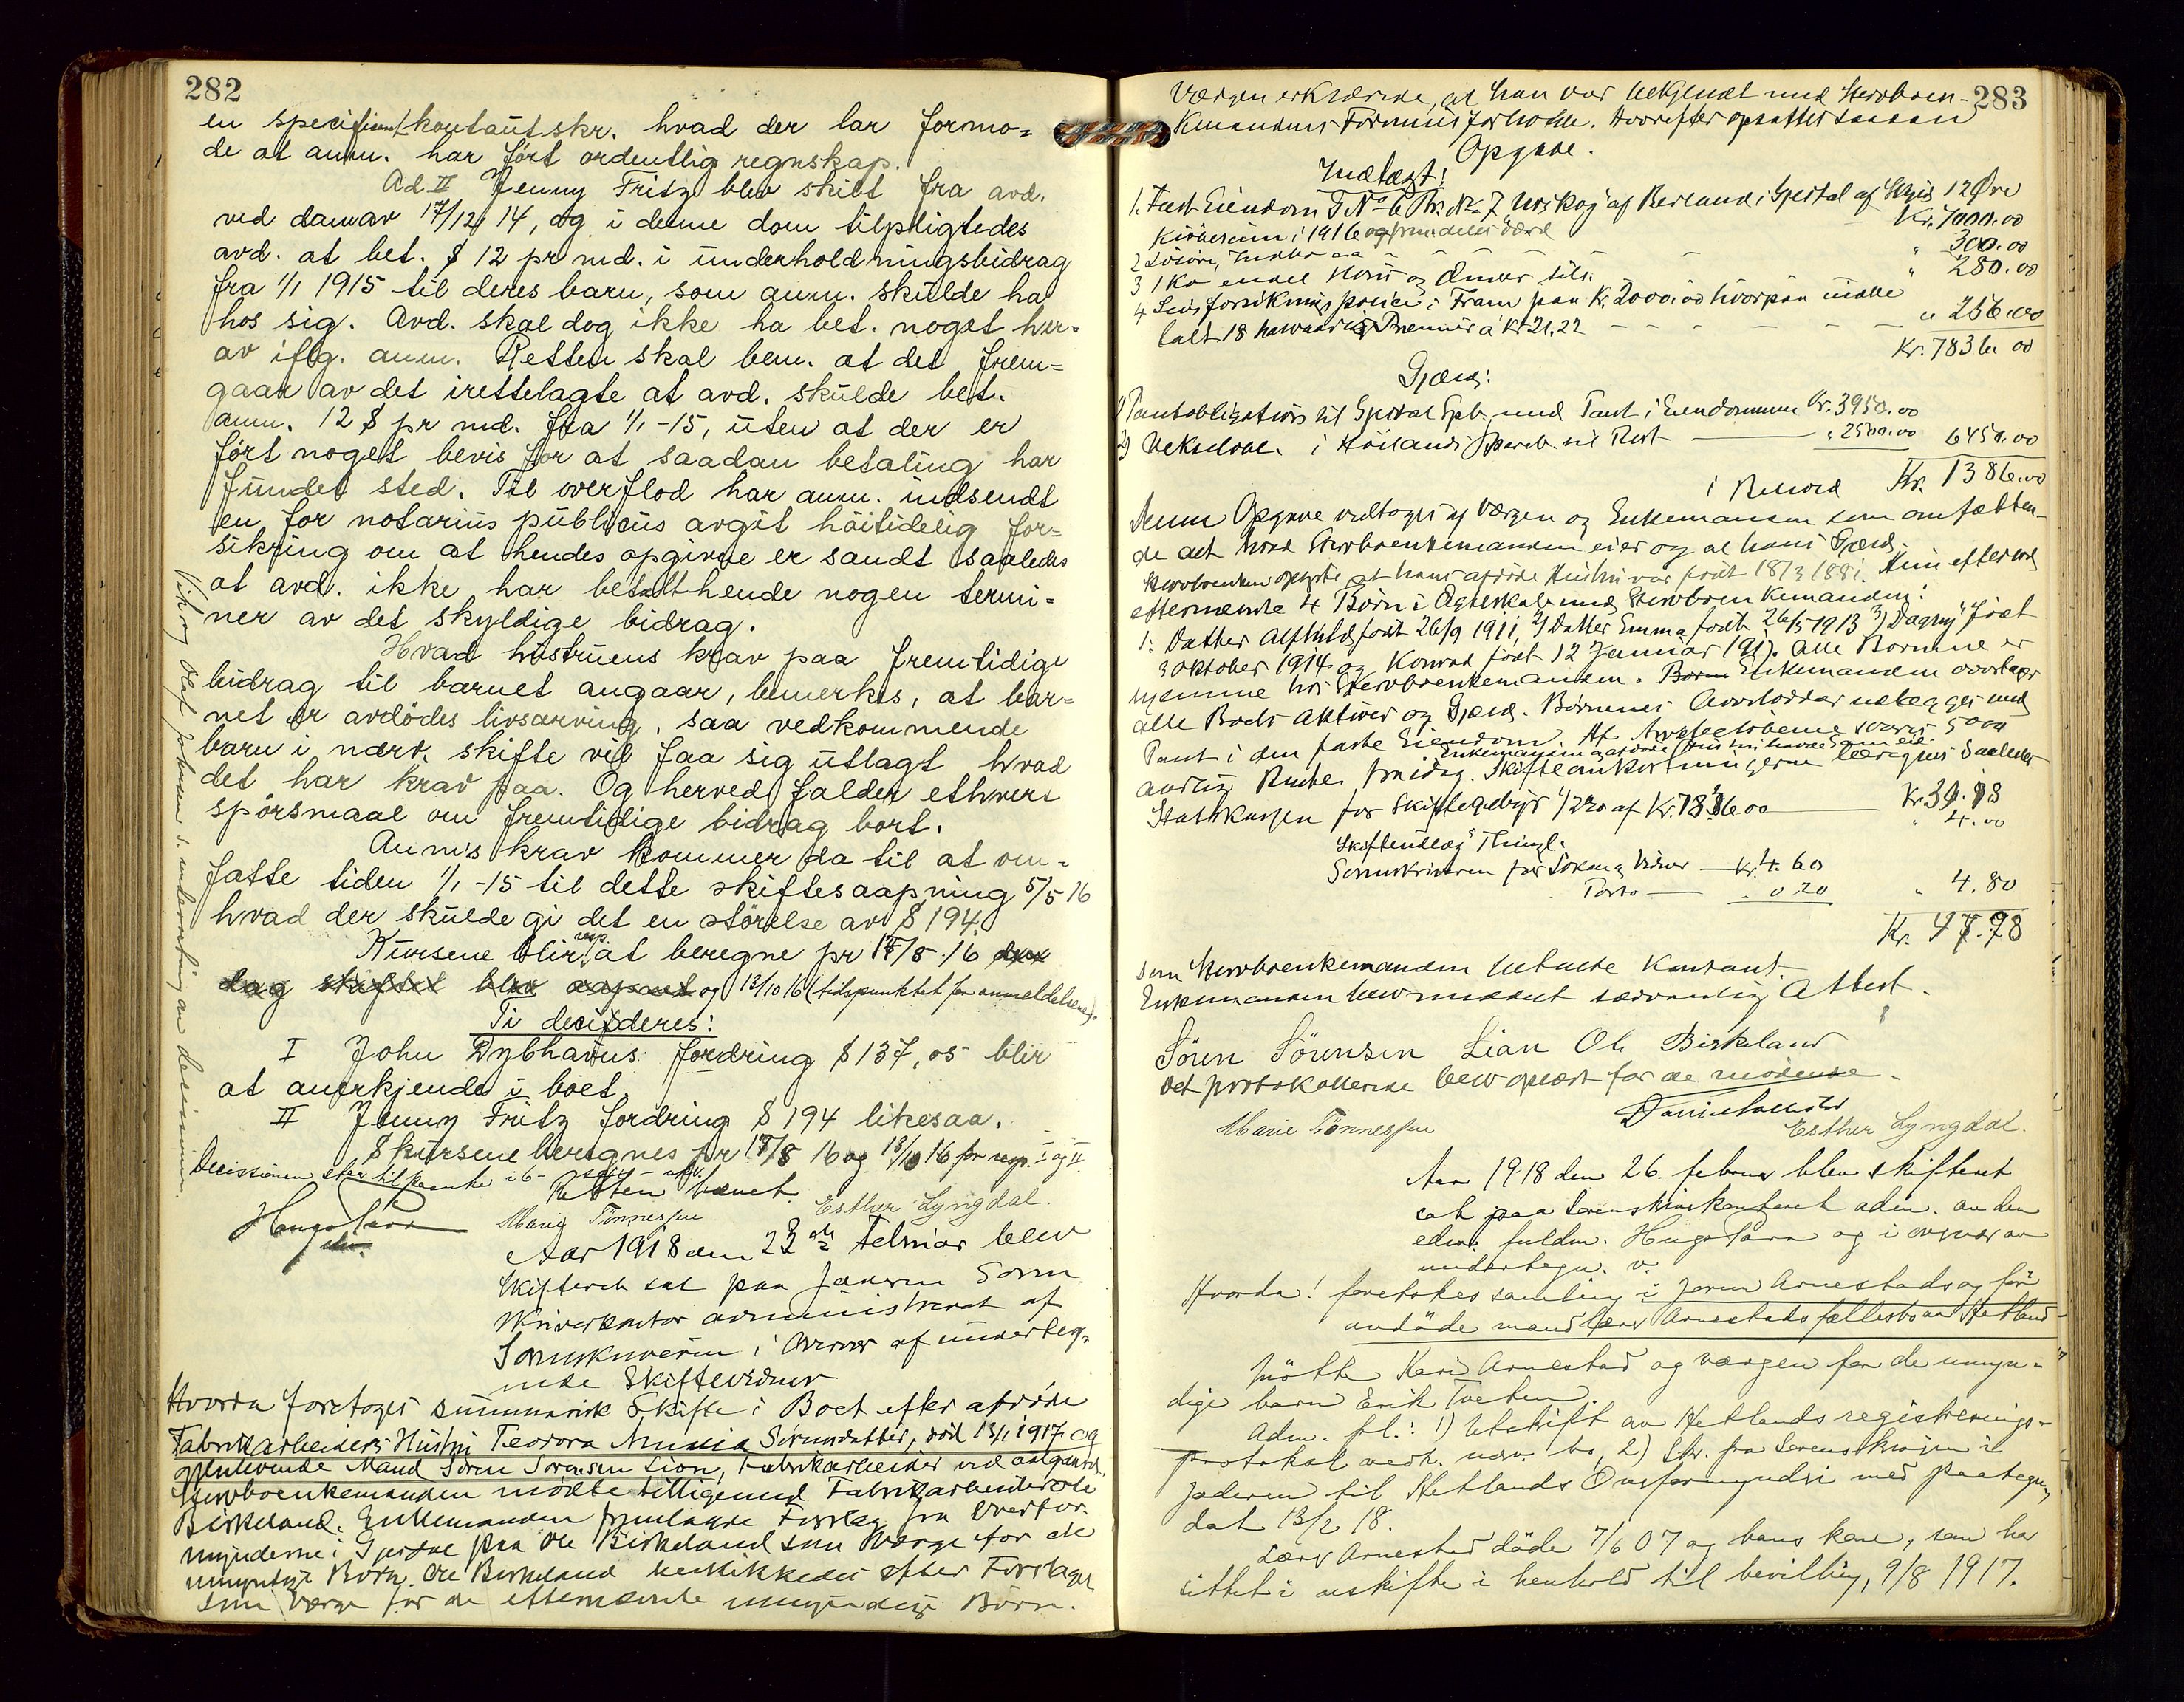 282
en specificeret kontautskr. hvad der lar formo=
de at anm. har ført ordentlig regnskap.
Ad II Jenny Fritz blev skilt fra avd.
ved dom av 17/12 14, og i denne dom tilpligtedes
avd. at bet. $ 12 pr md. i underholdningsbidrag
fra 1/1 1915 til deres barn, som anm. skulde ha
hos sig. Avd. skal dog ikke ha bet. noget her=
av iflg. anm. Retten skal bem. at det frem=
gaar av det irettelagte at avd. skulde bet.
anm. 12 $ pr md. fra 1/1-15, uten at der er
ført noget bevis for at saadan betaling har
fundet sted. Til overflod har anm. indsendt
en for notarius publicus avgit høitidelig for=
sikring om at hendes opgivne er sandt saaledes
at avd. ikke har betalt hende nogen termi=
ner av det skyldige bidrag.
Hvad hustruens krav paa fremtidige
bidrag til barnet angaar, bemerkes, at bar=
net er avdødes livsarving, saa vedkommende
barn i nærv. skifte vil faa sig utlagt hvad
det har krav paa. Og herved falder ethvert
spørsmaal om fremtidige bidrag bort.
Anm's krav kommer da til at om=
fatte tiden 1/1-15 til dette skiftesaapning 5/5 16
hvad der skulde gi det en størelse av $ 194.
Kursene blir resp. at beregne pr 17/8 16 den
dag skiftet blev aapnet og 13/10 16 (tidspunktet for anmeldelsene).
Ti decideres:
I John Dybhavns fordring $ 137,05 blir
at anerkjende i boet.
II Jenny Fritz fordring $ 194 likesaa.
$ kursene beregnes pr 17/8 16 og 13/10 16 for resp. I og II.
Decissionen sker til
Retten hævet.
Hugo Parr Marie Tønnessen Esther Lyngdal.
Aar 1918 den 23de Februar blev
Skifteret sat paa Jæderen Soren
skriverkontor administreret af
Sorenskriveren i Overvær af underteg-
nede Skiftevidner
Hvorda foretoges summarisk Skifte i Boet efter afdøde
Fabrikarbeiders Hustru Teodora Sørensdatter, død 13/1 1917 og
gjenlevende Mand Søren Sørensen Lian, Fabrikarbeider ved
Stervboenkemanden mødte tilligemed Fabrikarbeider Ole
Birkeland. Enkemanden fremlagde Forslag fra Overfor-
mynderne i Gjesdal paa Ole Birkeland som Værge for de
umyndige Børn. Ole Birkeland beskikkedes efter Forslaget
som Værge for de efternævnte umyndige Børn.
283
Værgen erklærede, at han var bekjendt med Stervboen-
kemandens Formuesforholde. Hvorefter opsattes saadan
Opgave.
Indtægt:
1. Fast Eiendom G No 6 Br. No 7 af Berland i Gjesdal af Skyld 12 Øre
Kjøbesum i 1916 og fremdeles Værd Kr. 7000.00
2 Løsøre, Indbo " 300.00
3 1 Ko endel Høns og " 280.00
4 Livsforsikringspolice i Fram paa Kr. 2000.00 hvorpaa indbe
talt 18 halvaarlige Premier á Kr 21.22 " 256.00
Kr. 7836.00
Gjæld:
1) Pantobligation til Gjesdal Spb. med Pant i Eiendommen Kr. 3950.00
2) Vekselobl. i Høilands Spareb. til Rest " 2500.00 6450.00
i Behold Kr. 1386.00
Denne Opgave vedtoges af Værgen og Enkemanden som omfatten-
de alt hvad Stervboenkemanden eier og al hans Gjæld.
Stervboenkem. oplyste at hans afdøde Hustru var født 18/3 1881. Hun efterlod
efternævnte 4 Børn i Ægteskab med Stervboenkemanden:
1. Datter Alfhild født 26/9 1911, 2) Datter Emma født 26/5 1913 3) Dagny født
3 Oktober 1914 og Konrad født 12 Januar 191. Alle Børnene er
hjemme hos Stervboenkemanden. Børn Enkemanden overtager
alle Boets Aktiver og Gjæld. Børnenes Arvelodder udlægges med
Pant i den faste Eiendom. Af Arvebeløbene svares 5%
aarlig Rente fra idag. Skifteomkostningerne beregnes saaledes
Statskassen for Skiftegebyr 1/2% af Kr. 7836.00 Kr. 39.18
Skifteudlæg Thingl. " 4.00
Sorenskriveren for Protok. og Vidner Kr. 4.60
Porto " 0.20 " 4.80
Kr. 47.98
som Stervboenkemanden betalte kontant.
Enkemanden blev meddelt sædvanlig Attest.
Søren Sørensen Lian Ole Birkeland
Det protokollerede blev oplæst for de mødende.
Marie Tønnessen Esther Lyngdal.
Aar 1918 den 26. februar blev skifteret
sat paa Sorenskriverkontoret adm. av den
edsv. fuldm. Hugo Parr og i overvær av
undertegn. v.
Hvorda! foretokes samling i Joren Arnestads og før
avdøde mand Lars Arnestads fællesbo av Hetland
Møtte Kari Arnestad og værgen for de umyn-
dige barn Erik Tveten.
Adm. fl.: 1) Utskrift av Hetlands registrerings-
protokol vedk. nærv. bo, 2) Skr. fra Sorenskriveren i
Jæderen til Hetlands Overformynderi med paategn.
dat 13/2 18.
Lars Arnestad døde 7/6 07 og hans kone, som har
sittet i uskifte i henhold til bevilling, 9/8 1917.